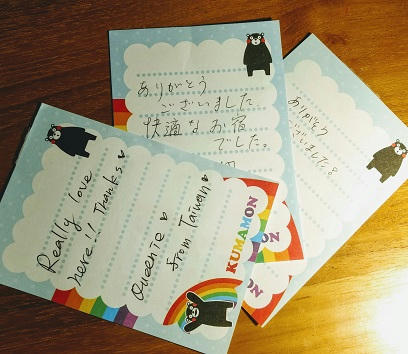 Really love
here!! Thanks♥
QueenTe ♥
from Taiwan♥
KUMAMON
ありがとう
ございました
快適なお宿
でした。
ON
ON
ありがとう
ございました。